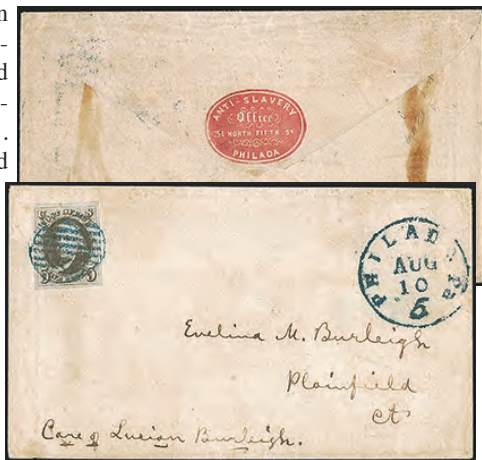 n
-
d
-
.
d
ANTI-SLAVERY
Office
31 NORTH FIFTH ST
PHILADA
PHILADA Pa
AUG
10
5
Evelina M. Burleigh
Plainfield
Ct
Care of Lucian Burleigh.